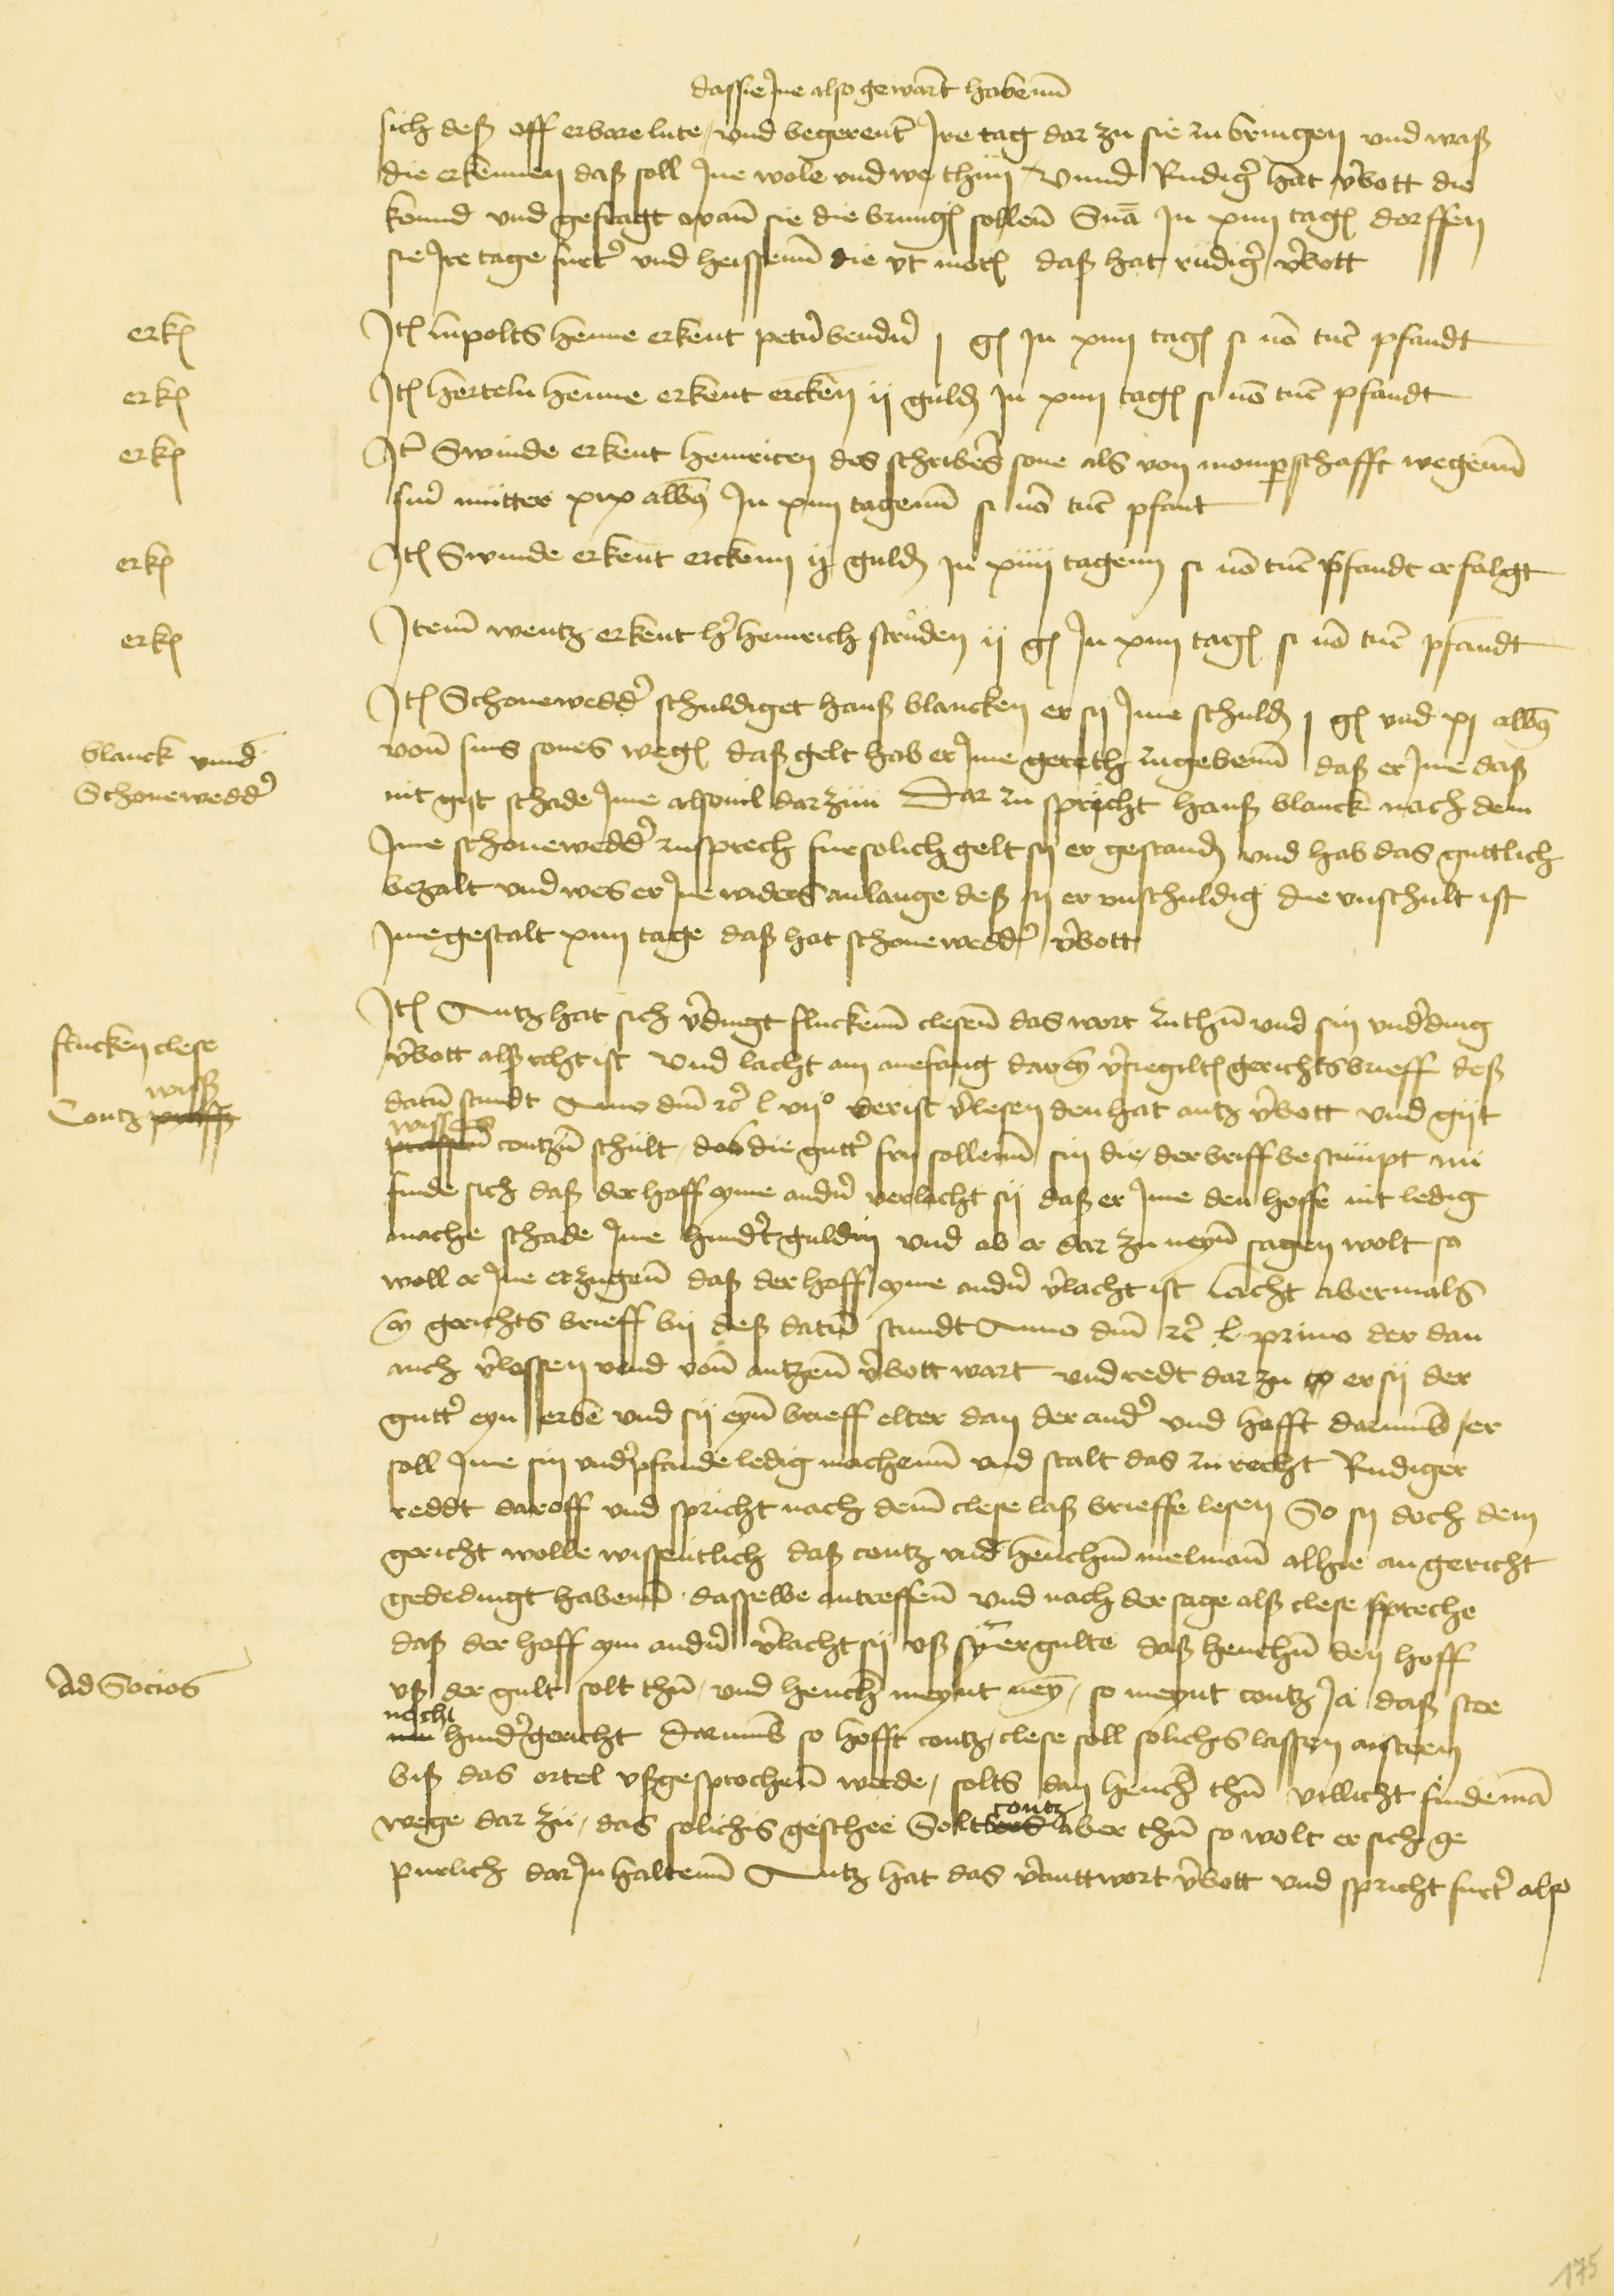 dassie Jne also gewart habenn
sich deß off erbare lute und begerent Jre tag dar zu sie zu bringen und waß
die erkennen daß soll Jne wole und we thun Unnd Rudigr hat vbott die
konnd und gefragt wan sie die brinngen sollen Sna Jn xiiii tagen dorffen
sie Jre tage furtr und heissenn die vt moris daß hat rudigr vbott
erken
Jten lupolts henne erkent petern bendern j gen Jn xiiii tagen si no tuc pfandt
erken
Jten herteln henne erkent ercken ij guld Jn xiiii tagen si no tuc pfandt
erken
Jt Swinde erkent heinricen des schribers sone als von momperschafft wegenn
siner mutter xix albus Jn xiiii tagenn si no tuc pfant
erken
Jten Swinde erkent erckenn ij guld Jn xiiii tagenn si no tuc pfandt erfolgt
erken
Jtem wentz erkent her heinrich studen ij gen Jn xiiii tagen si no tuc pfandt
blanck unnd
Schonewedder
Jten Schonewedder schuldiget hanß blancken er sy Jme schuld j gen und xj albus
von sins sones wegen daß gelt hab er Jme gereth zugebenn daß er Jme daß
nit gijt schade Jme alsovil darzuu Dar zu spricht hanß blanck nach dem
Jme schonewedder zusprech fur solich gelt sy er gestanden und hab das guttlich
bezalt und wes er Jne widers anlange deß sy er unschuldig die unschult ist
Jme gestalt xiiii tage daß hat schonewedder vbott
flucken clese
Contz praffs wiß
Jten Antz hat sich verdingt fluckenn clesen das wort zu thun und sin underding
vbott alß recht ist Und lacht am anefang dar eyn versiegilten gerichts brieff deß
datum stundt Anno dm rc l vijo der ist verlesen den hat antz vbott und gijt
praffen wissen contzen schult das die gutter fry sollenn sin die der briff bestimpt nu
finde sich daß der hoff eyme andern verlacht sij daß er Jme den hoffe nit ledig
mache schade Jme hundert guldin und ob er dar zu neyn sagen wolt so
woll er Jne erzugen daß der hoff eyme andern verlacht ist Lacht abermals
eyn gerichts brieff bij deß datum stundt Anno dm rc l primo der dan
auch verlossen unnd von antzen vbott wart und redt dar zu er sij der
gutter eyn erbe und sij eyn brieff elter dan der ander und hofft darumb er
soll Jme sin underpfande ledig machenn und stalt das zu recht Rudiger
reddt daroff und spricht nach dem clese laß brieffe lesen So sy doch dem
gericht wolle wissentlich daß contz und henchin melman alhie an gericht
gededingt habenn dasselbe antreffen und nach der sage alß clese spreche
daß der hoff eym andern verlacht sij uß syner gulte daß henchin den hoff
Ad Socios
uß der gult solt thun und henchin meynt neyn so meynt contz Ja daß stee
nun nocht hinder gericht darumb so hofft contz clese soll solichs lassen ansteen
biß das ortel ußgesprochen werde solts dan henchin thun villicht finde man
wege dar zu das solichis geschee Solts contz aber thun so wolt er sich ge
purlich dar Jn haltenn Antz hat das verantwort vbott und spricht furter also
175